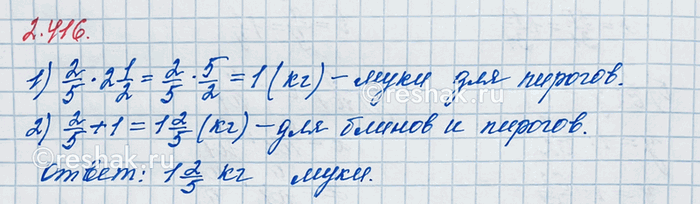 2.416.
1) 2/5 · 2 1/2 = 2/5 · 5/2 = 1 (кг) – муки для пирогов.
2) 2/5 + 1 = 1 2/5 (кг) – для блинов и пирогов.
Ответ: 1 2/5 кг муки.
reshak.ru
reshak.ru